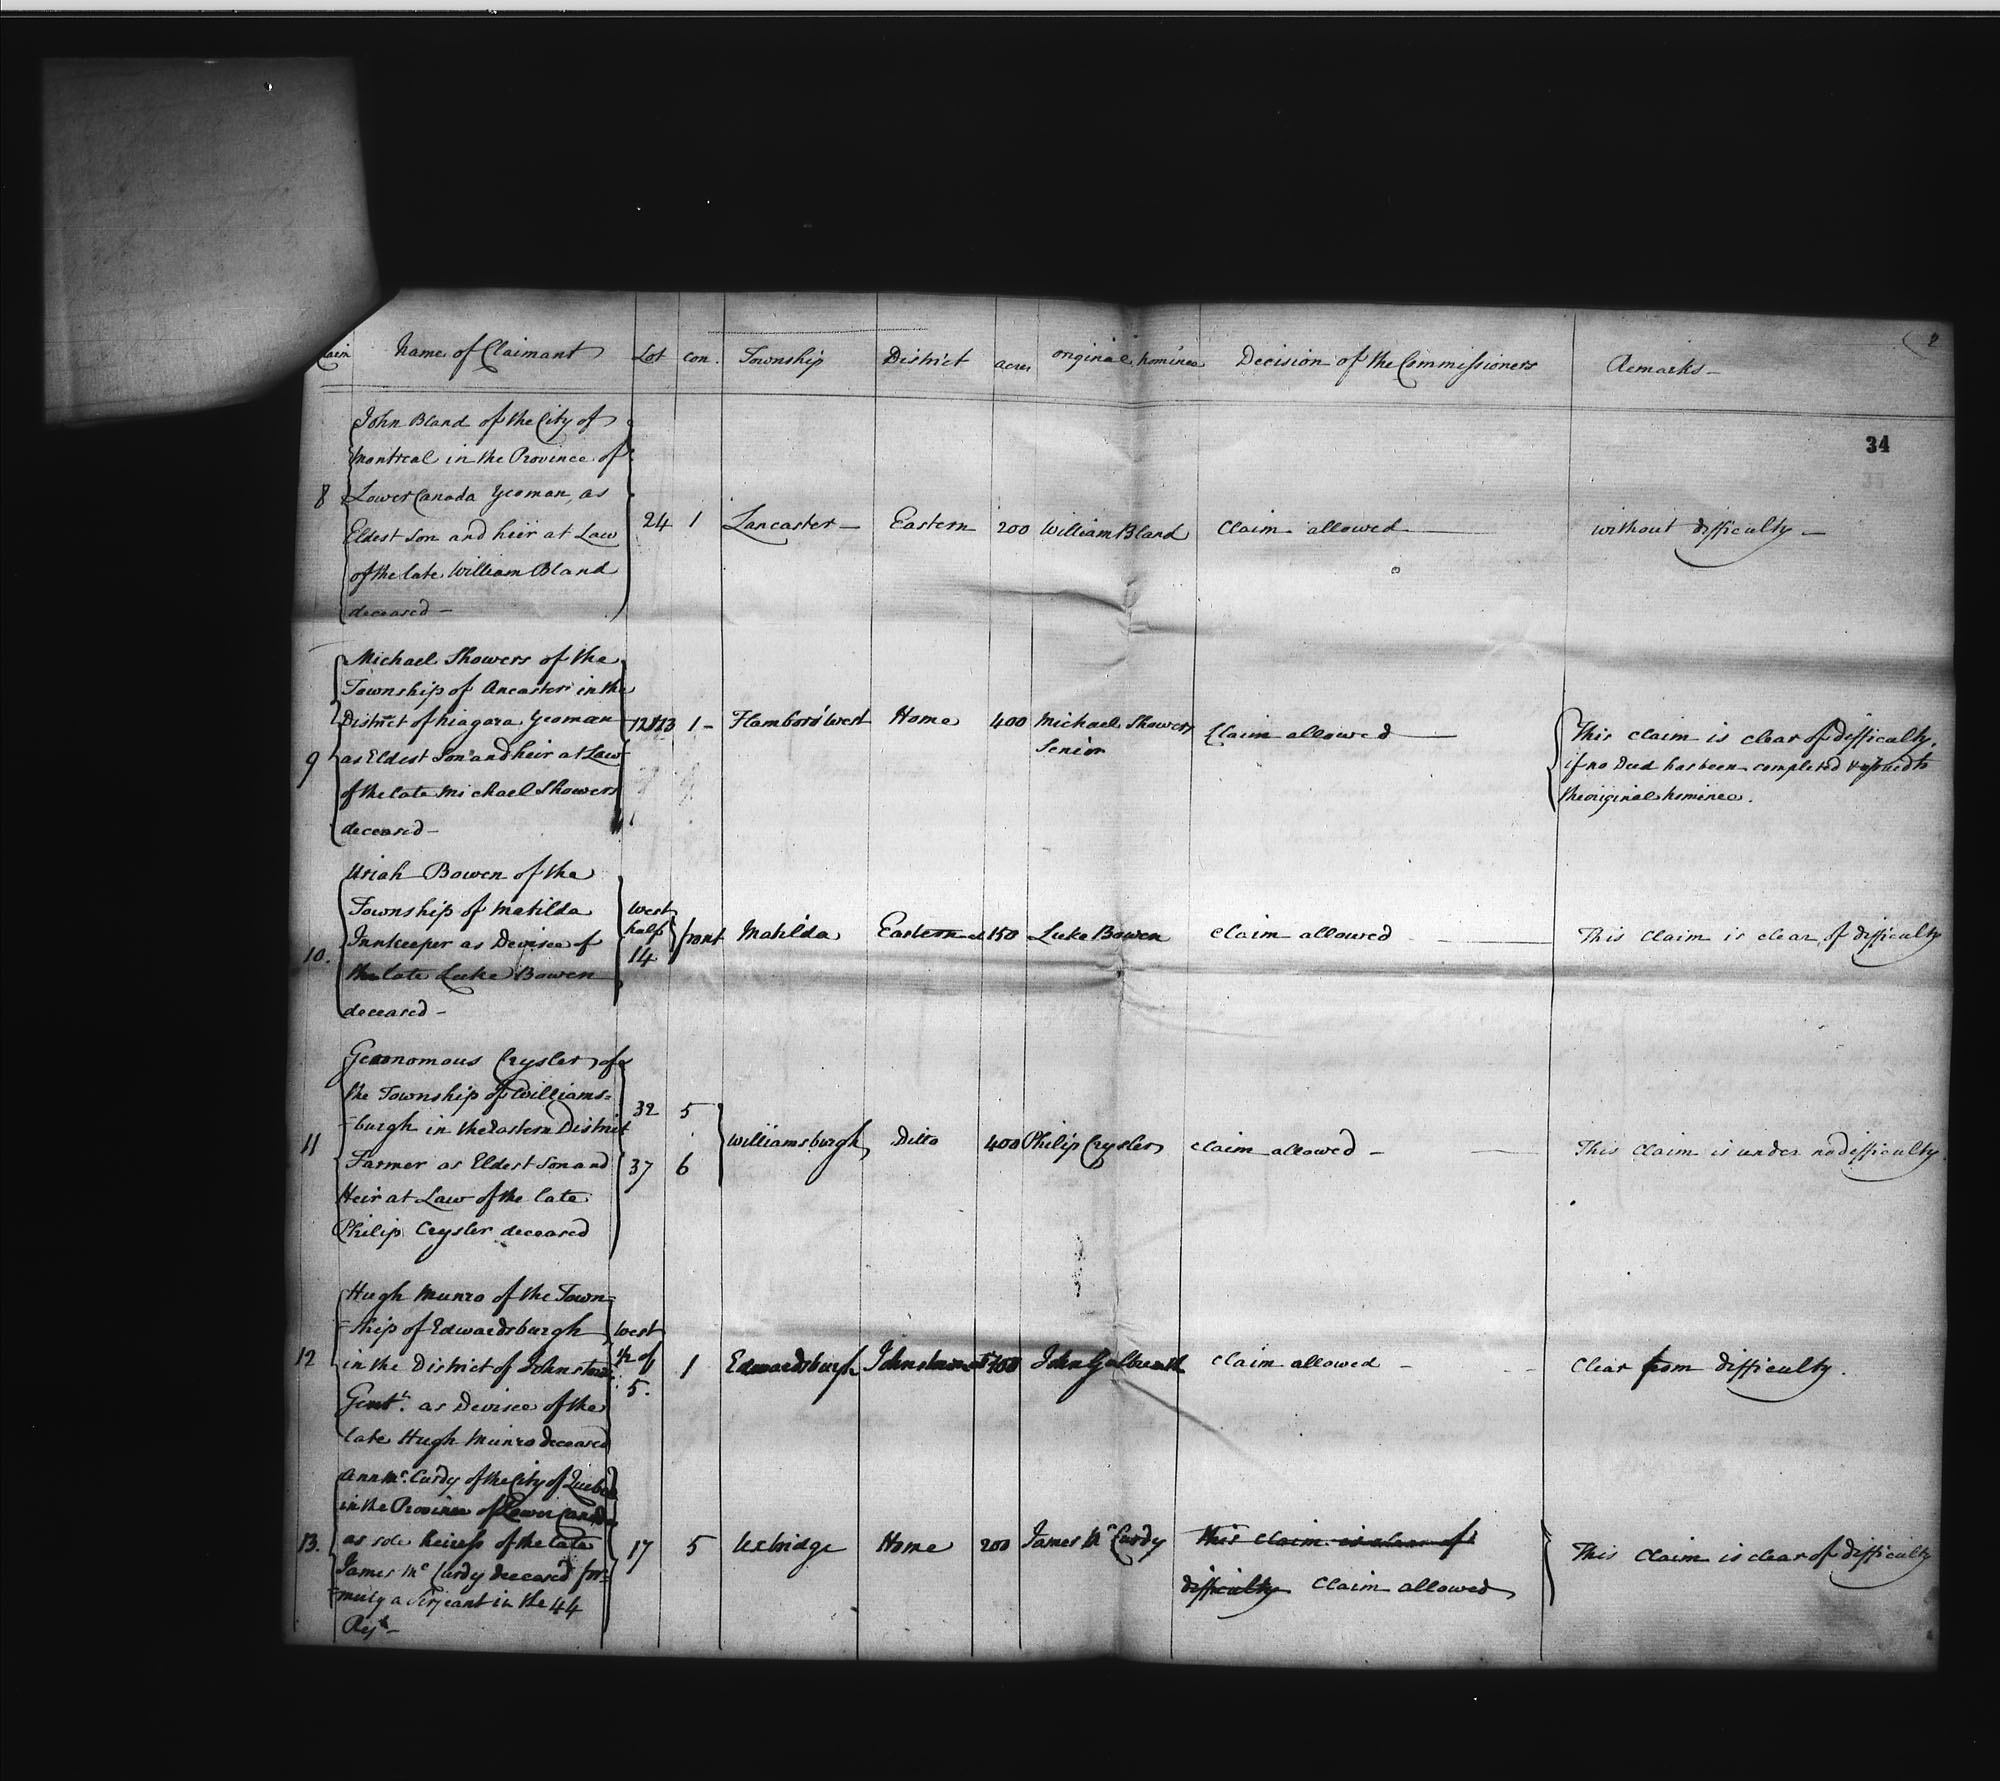 Claim Name of Claimant Lot con. Township District acres original nominee Decision of the Commissioners Remarks —
34
8
John Bland of the City of
Montreal in the Province of
Lower Canada Yeoman, as
Eldest Son and heir at Law
of the late William Bland
deceased —
24 1 Lancaster — Eastern 200 William Bland Claim allowed — without difficulty —
9
Michael Showers of the
Township of Ancaster in the
District of Niagara Yeoman
as Eldest Son and heir at Law
of the late Michael Showers
deceased —
12 & 13 1 — Flamboro' West Home 400 Michael Showers
Senior
Claim allowed —
This claim is clear of difficulty,
if no Deed has been completed & issued to
the original nominee.
10.
Uriah Bowen of the
Township of Matilda
Innkeeper as Devisee of
the late Luke Bowen
deceased —
West
half
14
front Matilda Eastern 150 Luke Bowen Claim allowed — This Claim is clear of difficulty
11
Geronomous Crysler of
the Township of Williams=
=burgh in the Eastern District
Farmer as Eldest Son and
Heir at Law of the late
Philip Crysler deceased
32 5
37 6
Williamsburgh Ditto 400 Philip Crysler Claim allowed — This Claim is under no difficulty.
12
Hugh Munro of the Town=
=ship of Edwardsburgh
in the District of Johnstown
Gent. as Devisee of the
late Hugh Munro deceased
West
1/2 of
5.
1 Edwardsburgh Johnstown 100 John Galbreath Claim allowed — Clear from difficulty.
13.
Ann Mc. Curdy of the City of Quebec
in the Province of Lower Canada
as sole heiress of the late
James Mc Curdy deceased for=
=merly a Serjeant in the 44
Regt —
17 5 Uxbridge Home 200 James Mc Curdy
This claim is clear of
difficulty Claim allowed
This Claim is clear of difficulty